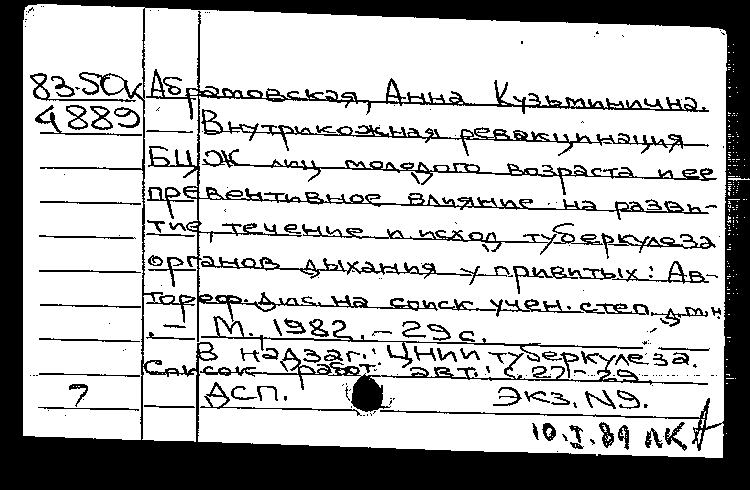 83-5OK Абрамовская, Анна Кузьминична.
4889 Внутрикожная ревакцинация
БЦЖ лиц молодого возраста и ее
превентивное влияние на разви-
тие, течение и исход туберкулеза
органов дыхания у привитых: Ав-
тореф. дис. на соиск. учен. степ. д.м.н
. — М., 1982. — 29 с.
В надзаг.: ЦНИИ туберкулеза.
Список работ. авт.: с. 27-29.
7 ДСП. Экз. N9.
10.I.89